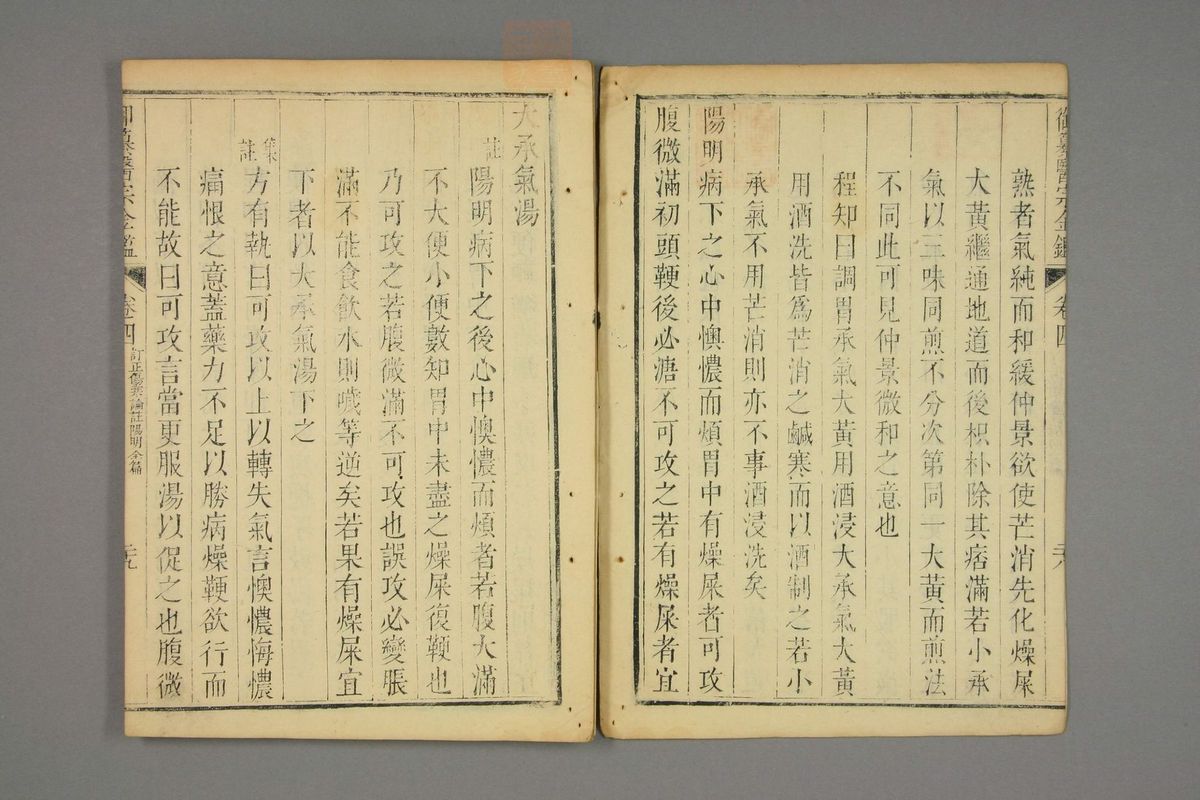 御纂醫宗金鑑 卷四 三八
熟者氣純而和緩仲景欲使芒消先化燥屎
大黃繼通地道而後枳朴除其痞滿若小承
氣以三味同煎不分次第同一大黃而煎法
不同此可見仲景微和之意也
程知曰調胃承氣大黃用酒浸大承氣大黃
用酒洗皆爲芒消之鹹寒而以酒制之若小
承氣不用芒消則亦不事酒浸洗矣
陽明病下之心中懊憹而煩胃中有燥屎者可攻
腹微滿初頭鞕後必溏不可攻之若有燥屎者宜
大承氣湯
註 陽明病下之後心中懊憹而煩者若腹大滿
不大便小便數知胃中未盡之燥屎復鞕也
乃可攻之若腹微滿不可攻也誤攻必變脹
滿不能食飲水則噦等逆矣若果有燥屎宜
下者以大承氣湯下之
集註 方有執曰可攻以上以轉失氣言懊憹悔憹
痛恨之意蓋藥力不足以勝病燥鞕欲行而
不能故曰可攻言當更服湯以促之也腹微
御纂醫宗金鑑 卷四 訂正傷寒論註陽明全篇 三九